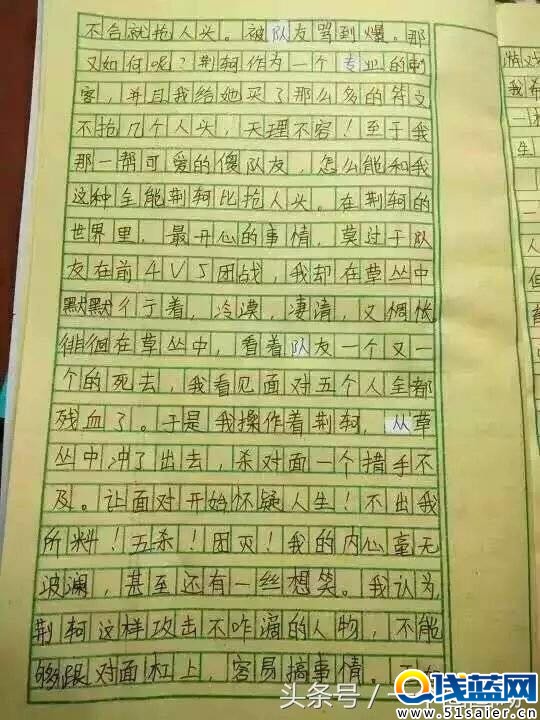 不合就抢人头。被队友骂到爆。那
又如何呢?荆轲作为一个专业的刺
客,并且我给她买了那么多的符文
不抢几个人头,天理不容!至于我
那一帮可爱的傻队友,怎么能和我
这种全能荆轲比抢人头。在荆轲的
世界里,最开心的事情,莫过于队
友在前4V5团战,我却在草丛中
默默彳亍着,冷漠,凄清,又惆怅
徘徊在草丛中,看着队友一个又一
个的死去,我看见面对五个人全都
残血了。于是我操作着荆轲,从草
丛中冲了出去,杀对面一个措手不
及。让面对开始怀疑人生!不出我
所料!五杀!团灭!我的内心毫无
波澜,甚至还有一丝想笑。我认为,
荆轲这样攻击不咋滴的人物,不能
够跟对面杠上,容易搞事情。
游戏
我希
生
人
但
有
头条号/一
线蓝网
www.51saier.cn